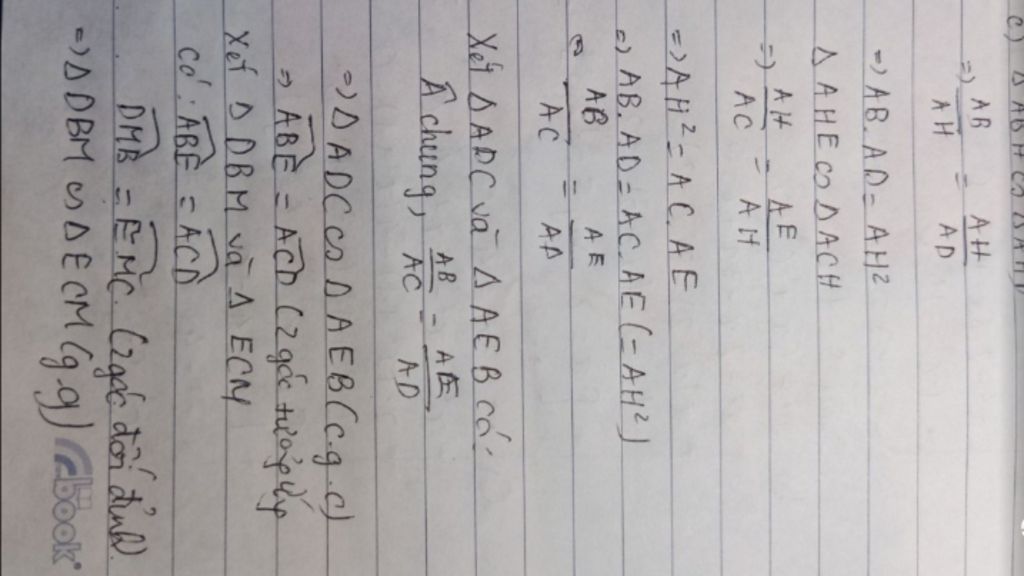 c) Δ ABH ∽ Δ AHD
=> AB/AH = AH/AD
=> AB.AD = AH²
Δ AHE ∽ Δ ACH
=> AH/AC = AE/AH
=> AH² = AC.AE
=> AB.AD = AC.AE (= AH²)
<=> AB/AC = AE/AD
Xét Δ ADC và Δ AEB có:
Â chung, AB/AC = AE/AD
=> Δ ADC ∽ Δ AEB (c.g.c)
=> ABE = ACD (2 góc tương ứng
Xét Δ DBM và Δ ECM
có: ABE = ACD
DMB = EMC (2 góc đối đỉnh)
=> Δ DBM ∽ Δ ECM (g.g)